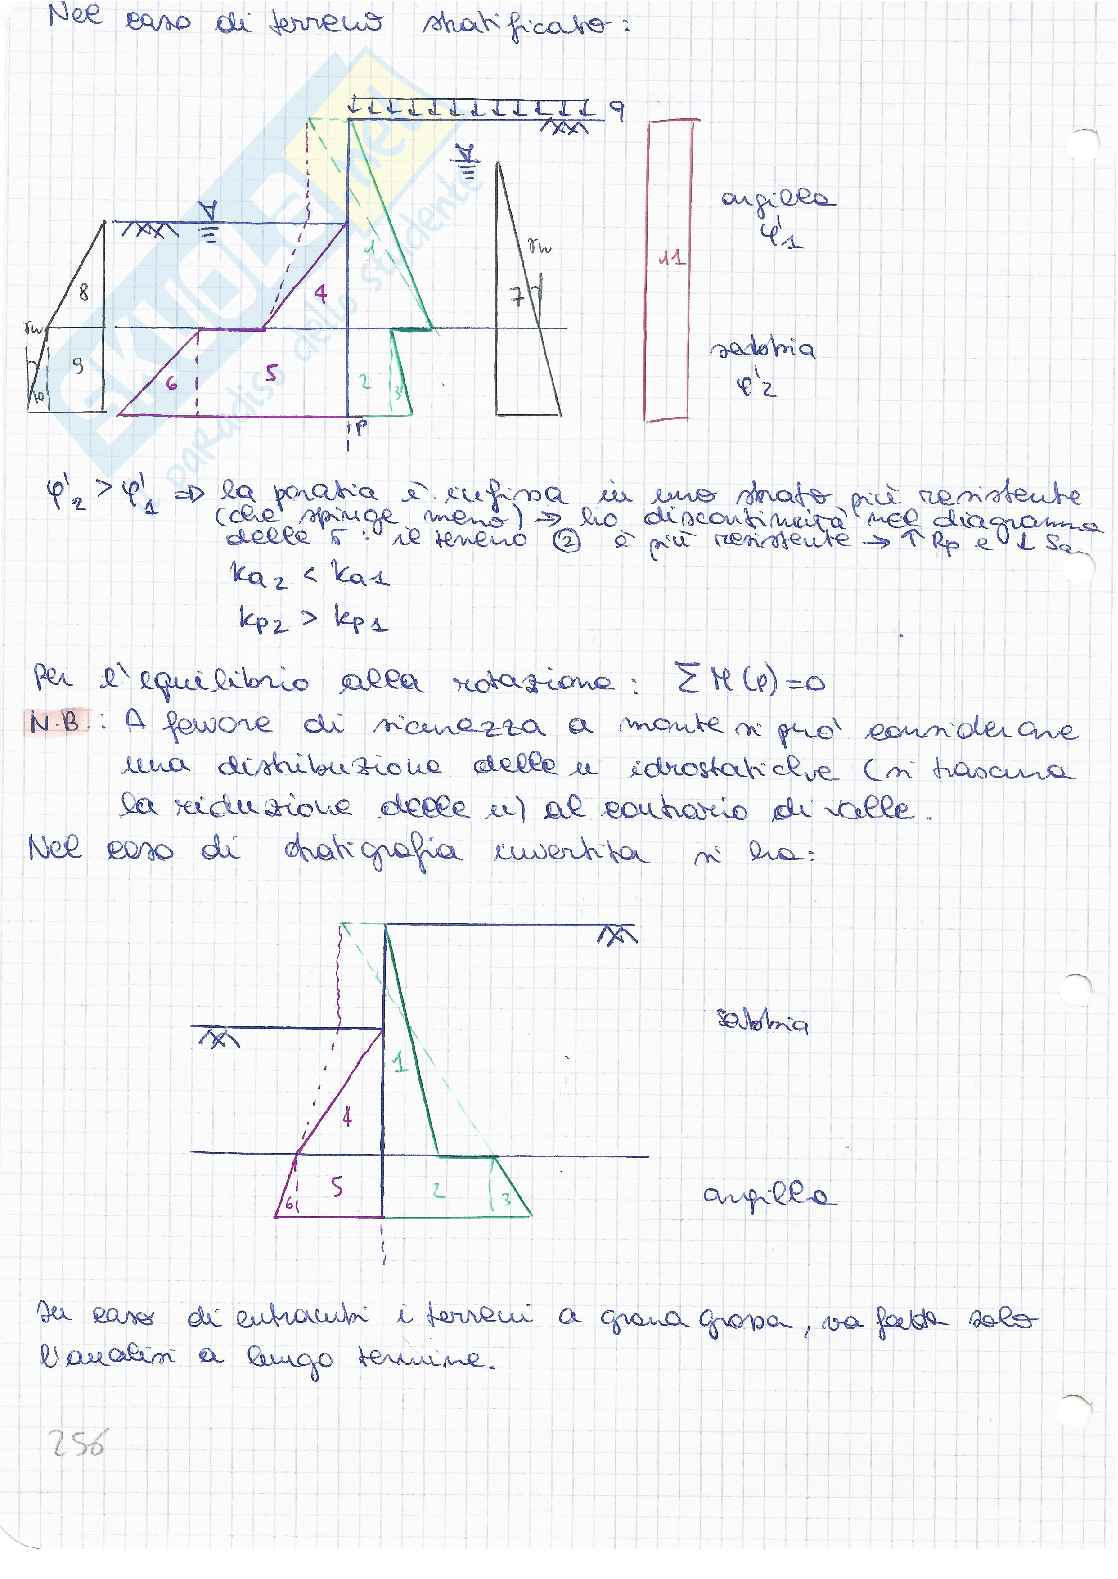 Nel caso di terreno stratificato:
q
argilla
φ'1
γw
1
4
8
7
11
γw
sabbia
φ'2
9
10
6
5
2
3
P
φ'2 > φ'1 => la paratia è infissa in uno strato più resistente
(che spinge meno) => ho discontinuità nel diagramma
delle σ: il terreno ② è più resistente → ↑ Rp e ↓ Sa
ka2 < ka1
kp2 > kp1
Per l'equilibrio alla rotazione: ΣM(P)=0
N.B.: A favore di sicurezza a monte si può considerare
una distribuzione delle u idrostatiche (si trascura
la riduzione delle u) al contrario di valle.
Nel caso di stratigrafia invertita si ha:
sabbia
1
4
5
6
2
3
argilla
In caso di entrambi i terreni a grana grossa, va fatta solo
l'analisi a lungo termine.
256
SKUOLA.net
paradiso dello studente